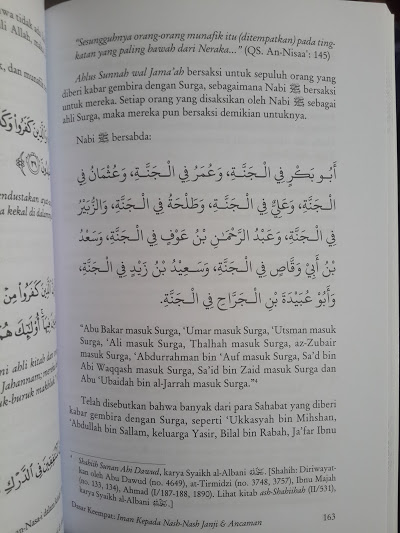 wa tidak
i Allah,
k, dan
"Sesungguhnya orang-orang munafik itu (ditempatkan) pada ting-
katan yang paling bawah dari Neraka..." (QS. An-Nisaa': 145)
Ahlus Sunnah wal Jama'ah bersaksi untuk sepuluh orang yang
diberi kabar gembira dengan Surga, sebagaimana Nabi ﷺ bersaksi
untuk mereka. Setiap orang yang disaksikan oleh Nabi ﷺ sebagai
ahli Surga, maka mereka pun bersaksi demikian untuknya.
Nabi ﷺ bersabda:
أَبُو بَكْرٍ فِي الْجَنَّةِ، وَعُمَرُ فِي الْجَنَّةِ، وَعُثْمَانُ فِي
الْجَنَّةِ، وَعَلِيٌّ فِي الْجَنَّةِ، وَطَلْحَةُ فِي الْجَنَّةِ، وَالزُّبَيْرُ
فِي الْجَنَّةِ، وَعَبْدُ الرَّحْمٰنِ بْنُ عَوْفٍ فِي الْجَنَّةِ، وَسَعْدُ
بْنُ أَبِيْ وَقَّاصٍ فِي الْجَنَّةِ، وَسَعِيْدُ بْنُ زَيْدٍ فِي الْجَنَّةِ،
وَأَبُوْ عُبَيْدَةَ بْنِ الْجَرَّاحِ فِي الْجَنَّةِ.
"Abu Bakar masuk Surga, 'Umar masuk Surga, 'Utsman masuk
Surga, 'Ali masuk Surga, Thalhah masuk Surga, az-Zubair
masuk Surga, 'Abdurrahman bin 'Auf masuk Surga, Sa'd bin
Abi Waqqash masuk Surga, Sa'id bin Zaid masuk Surga dan
Abu 'Ubaidah bin al-Jarrah masuk Surga."⁴
Telah disebutkan bahwa banyak dari para Sahabat yang diberi
kabar gembira dengan Surga, seperti 'Ukkasyah bin Mihshan,
'Abdullah bin Sallam, keluarga Yasir, Bilal bin Rabah, Ja'far Ibnu
⁴ Shahih Sunan Abi Dawud, karya Syaikh al-Albani. [Shahih: Diriwayat-
kan oleh Abu Dawud (no. 4649), at-Tirmidzi (no. 3748, 3757), Ibnu Majah
(no. 133, 134), Ahmad (I/187-188, 1890). Lihat kitab ash-Shahiihah (II/531),
karya Syaikh al-Albani].
Dasar Keempat: Iman Kepada Nash-Nash Janji & Ancaman
163